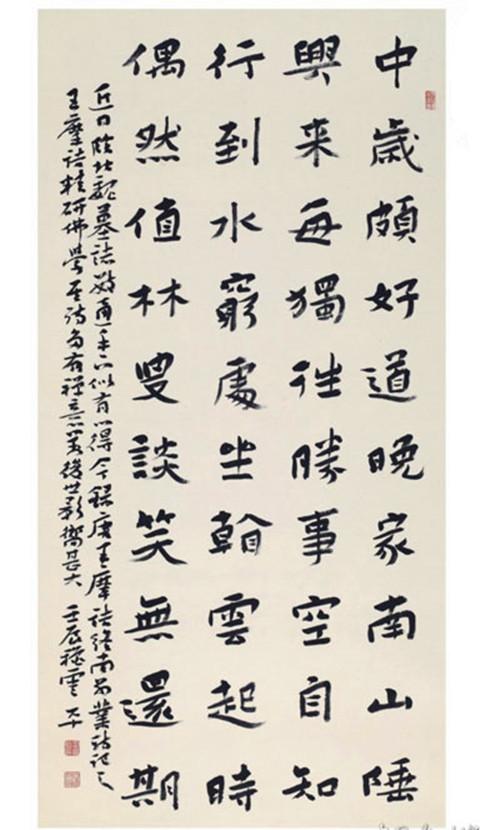 中歲頗好道晚家南山陲
興来每獨往勝事空自知
行到水窮處坐看雲起時
偶然值林叟談笑無還期
近日臨北魏墓誌數通手下似有所得今録唐王摩詰終南別業詩記之
王摩詰精研佛學其詩多有禪意後世影響甚大 壬辰